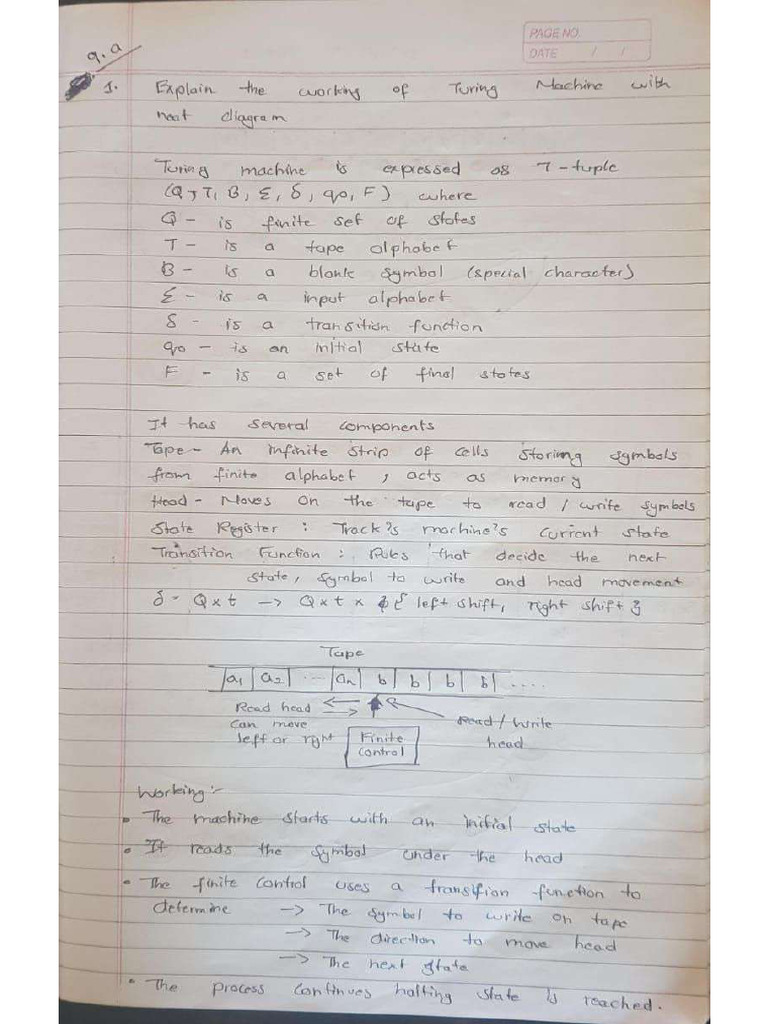 PAGE NO.
DATE / /
q.a
1. Explain the working of Turing Machine with
neat diagram
Turing machine is expressed as 7-tuple
(Q, T, B, Σ, δ, q0, F) where
Q - is finite set of states
T - is a tape alphabet
B - is a blank symbol (special character)
Σ - is a input alphabet
δ - is a transition function
q0 - is an initial state
F - is a set of final states
It has several components
Tape - An infinite strip of cells storing symbols
from finite alphabet, acts as memory
Head - Moves on the tape to read / write symbols
State Register : Track's machine's current state
Transition Function : Rules that decide the next
state, symbol to write and head movement
δ = Q x t → Q x t x { left shift, right shift }
Tape
a1 | a2 | ... | an | b | b | b | b | ....
Read head
can move
left or right
Finite
control
Read / Write
head
Working :-
• The machine starts with an initial state
• It reads the symbol under the head
• The finite control uses a transition function to
determine → The symbol to write on tape
→ The direction to move head
→ The next state
• The process continues halting state is reached.